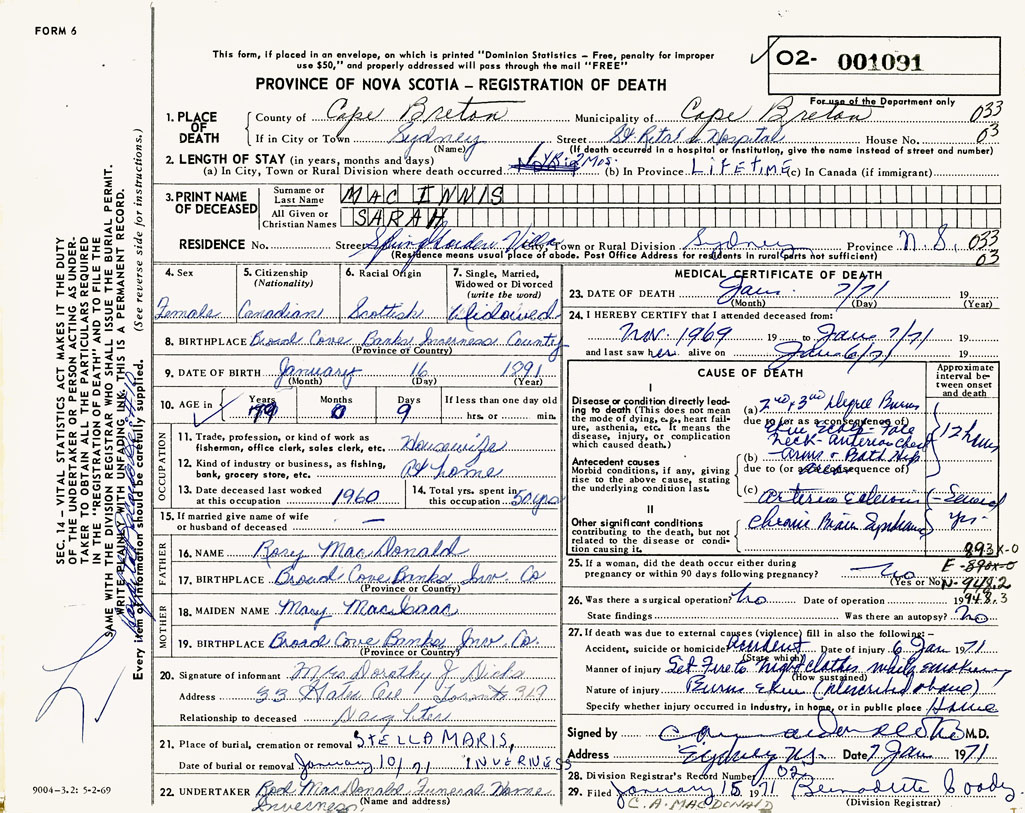 FORM 6
This form, if placed in an envelope, on which is printed "Dominion Statistics – Free, penalty for improper
use $50," and properly addressed will pass through the mail "FREE"
PROVINCE OF NOVA SCOTIA – REGISTRATION OF DEATH
O2- 001091
For use of the Department only
1. PLACE OF DEATH
County of Cape Breton Municipality of Cape Breton 033
If in City or Town Sydney Street St Rita's Hospital House No. 03
(Name) (If death occurred in a hospital or institution, give the name instead of street and number)
2. LENGTH OF STAY (in years, months and days)
(a) In City, Town or Rural Division where death occurred 2 Mos. (b) In Province LIFETIME (c) In Canada (if immigrant)
3. PRINT NAME OF DECEASED
Surname or Last Name MAC INNIS
All Given or Christian Names SARAH
RESIDENCE No. Street Spring Garden Villa City, Town or Rural Division Sydney Province N. S. 033
(Residence means usual place of abode. Post Office Address for residents in rural parts not sufficient) 03
4. Sex Female
5. Citizenship (Nationality) Canadian
6. Racial Origin Scottish
7. Single, Married, Widowed or Divorced (write the word) Widowed
8. BIRTHPLACE Broad Cove Banks Inverness County
(Province or Country)
9. DATE OF BIRTH January 16 1891
(Month) (Day) (Year)
10. AGE in Years 79 Months 0 Days 9 If less than one day old
hrs. or min.
OCCUPATION
11. Trade, profession, or kind of work as fisherman, office clerk, sales clerk, etc. Housewife
12. Kind of industry or business, as fishing, bank, grocery store, etc. At home
13. Date deceased last worked at this occupation 1960
14. Total yrs. spent in this occupation 50 yrs
15. If married give name of wife or husband of deceased —
FATHER
16. NAME Rory MacDonald
17. BIRTHPLACE Broad Cove Banks Inv. Co
(Province or Country)
MOTHER
18. MAIDEN NAME Mary MacIsaac
19. BIRTHPLACE Broad Cove Banks Inv. Co.
(Province or Country)
20. Signature of informant Mrs Dorothy J
Address 33 Ave Toronto 317
Relationship to deceased Daughter
21. Place of burial, cremation or removal STELLA MARIS,
Date of burial or removal January 10/71 INVERNESS
22. UNDERTAKER Rod MacDonald Funeral Home
(Name and address) Inverness
MEDICAL CERTIFICATE OF DEATH
23. DATE OF DEATH Jan. 7/71 19
(Month) (Day) (Year)
24. I HEREBY CERTIFY that I attended deceased from:
Nov. 1969 19 to Jan 7/71 19
and last saw her alive on Jan 6/71 19
CAUSE OF DEATH
Approximate interval between onset and death
I
Disease or condition directly leading to death (This does not mean the mode of dying, e.g., heart failure, asthenia, etc. It means the disease, injury, or complication which caused death.)
(a) 2nd & 3rd Degree Burns
due to (or as a consequence of)
Face
neck - anterior chest
12 hours
Antecedent causes
Morbid conditions, if any, giving rise to the above cause, stating the underlying condition last.
(b) arms & Both
due to (or as a consequence of)
(c) arteriosclerosis - Several yrs.
II
Other significant conditions contributing to the death, but not related to the disease or condition causing it.
Chronic Brain Syndrome
893X-0
25. If a woman, did the death occur either during pregnancy or within 90 days following pregnancy? No
(Yes or No)
E-890X-0
N-948.2
948.3
26. Was there a surgical operation? no Date of operation 19
State findings Was there an autopsy? no
27. If death was due to external causes (violence) fill in also the following:–
Accident, suicide or homicide? Accident Date of injury 6 Jan 1971
(State which)
Manner of injury Set Fire to night clothes while smoking
(How sustained)
Nature of injury Burns Skin (described above)
Specify whether injury occurred in industry, in home, or in public place Home
Signed by M.D.
Address Sydney N.S. Date 7 Jan 1971
28. Division Registrar's Record Number 02
29. Filed January 15 1971 Bernadette
C. A. MACDONALD (Division Registrar)
SEC. 14 – VITAL STATISTICS ACT MAKES IT THE DUTY
OF THE UNDERTAKER OR PERSON ACTING AS UNDERTAKER
TO OBTAIN ALL THE PARTICULARS REQUIRED
IN THE "REGISTRATION OF DEATH" AND TO FILE THE
SAME WITH THE DIVISION REGISTRAR WHO SHALL ISSUE THE BURIAL PERMIT.
WRITE PLAINLY WITH UNFADING INK. THIS IS A PERMANENT RECORD.
Every item of information should be carefully supplied. (See reverse side for instructions.)
9004-3.2: 5-2-69